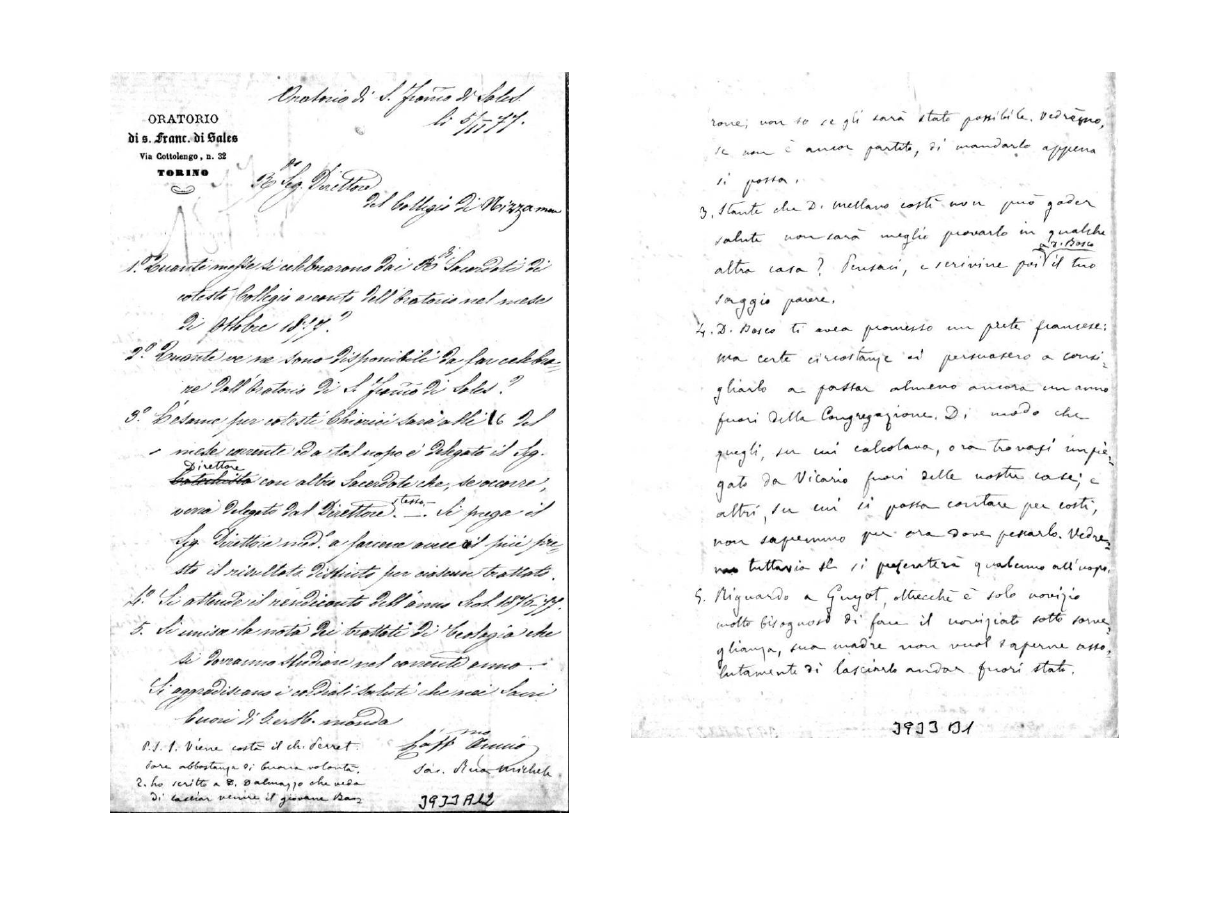 ORATORIO
di s. Franc. di Sales
Via Cottolengo, n. 32
TORINO
Oratorio di S. Franco di Sales
li 5/11 77.
R Sig. Direttore
del Collegio di Nizza mare
1.° Quante messe si celebrarono dai RR Sacerdoti di
cotesto Collegio a conto dell'Oratorio nel mese
di Ottobre 1877?
2.° Quante ve ne sono disponibili da far celebra-
re dall'Oratorio di S. Franco di Sales?
3.° L'esame per cotesti Chierici sarà alli 16 del
mese corrente ed a tal uopo è delegato il Sig.
Direttore
Catechista con altro Sacerdote che, se occorre,
verrà delegato dal Direttore stesso. Si prega il
Sig. Direttore med.° a farcene avere il più pre-
sto il risultato distinto per ciascun trattato.
4.° Si attende il rendiconto dell'anno Scol. 1876-77.
5. Si unisce la nota dei trattati di Teologia che
si dovranno studiare nel corrente anno.
Si aggradiscano i cordiali saluti che nei Sacri
Cuori di G. e M. manda
L'aff.mo Amico
Sac. Rua Michele
P.S. 1. Viene costà il ch. Perret.
Pare abbastanza di buona volontà.
2. ho scritto a D. Dalmazzo che veda
di lasciar venire il giovane
3933 A12
rone; non so se gli sarà stato possibile. Vedremo,
se non è ancor partito, di mandarlo appena
si possa.
3. Stante che D. Mellano costì non può goder
salute non sarà meglio provarlo in qualche
a D. Bosco
altra casa? Pensaci, e scrivine poi il tuo
saggio parere.
4. D. Bosco ti avea promesso un prete francese;
ma certe circostanze ci persuasero a consi-
gliarlo a passar almeno ancora un anno
fuori della Congregazione. Di modo che
quegli, su cui calcolava, ora trovasi impie-
gato da Vicario fuori delle nostre case; e
altri, su cui si possa contare per costì,
non sapremmo per ora dove pescarlo. Vedre-
mo tuttavia se si preparerà qualcuno all'uopo.
5. Riguardo a Guyot, oltrecchè è solo novizio
molto bisognoso di fare il noviziato sotto sorve-
glianza, sua madre non vuol saperne asso-
lutamente di lasciarlo andar fuori stato.
3933 B1